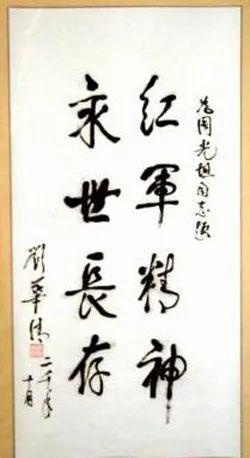 为周光同志
红軍精神
永世長存
劉華清
二千年
十月